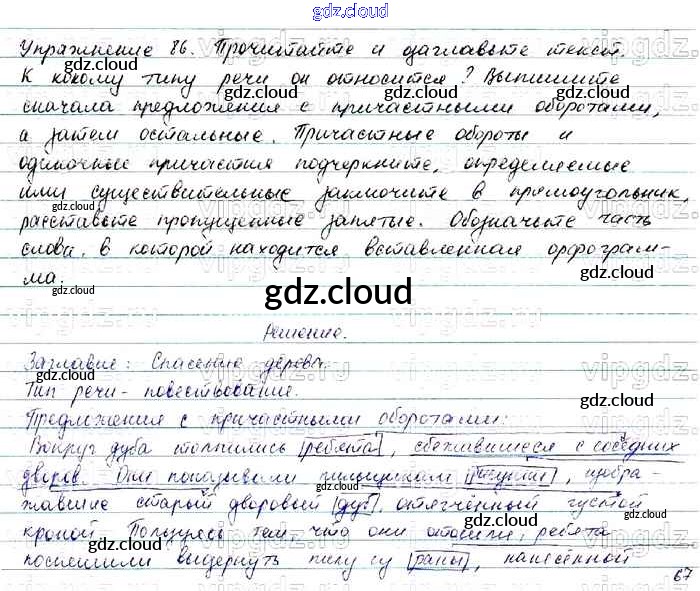 gdz.cloud
Упражнение 86. Прочитайте и озаглавьте текст.
К какому типу речи он относится? Выпишите
сначала предложения с причастными оборотами,
а затем остальные. Причастные обороты и
одиночные причастия подчеркните, определяемые
ими существительные заключите в прямоугольник,
расставьте пропущенные запятые. Обозначьте часть
слова, в которой находится вставленная орфограм-
ма.
gdz.cloud
Решение.
Заглавие: Спасение дерева.
Тип речи - повествование.
Предложения с причастными оборотами:
Вокруг дуба толпились ребята, сбежавшиеся с соседних
дворов. Они показывали пильщикам рисунки, изобра-
жавшие старый дворовый дуб, отягчённый густой
кроной. Пользуясь тем, что они отошли, ребята
поспешили выдернуть пилу из раны, нанесённой
67